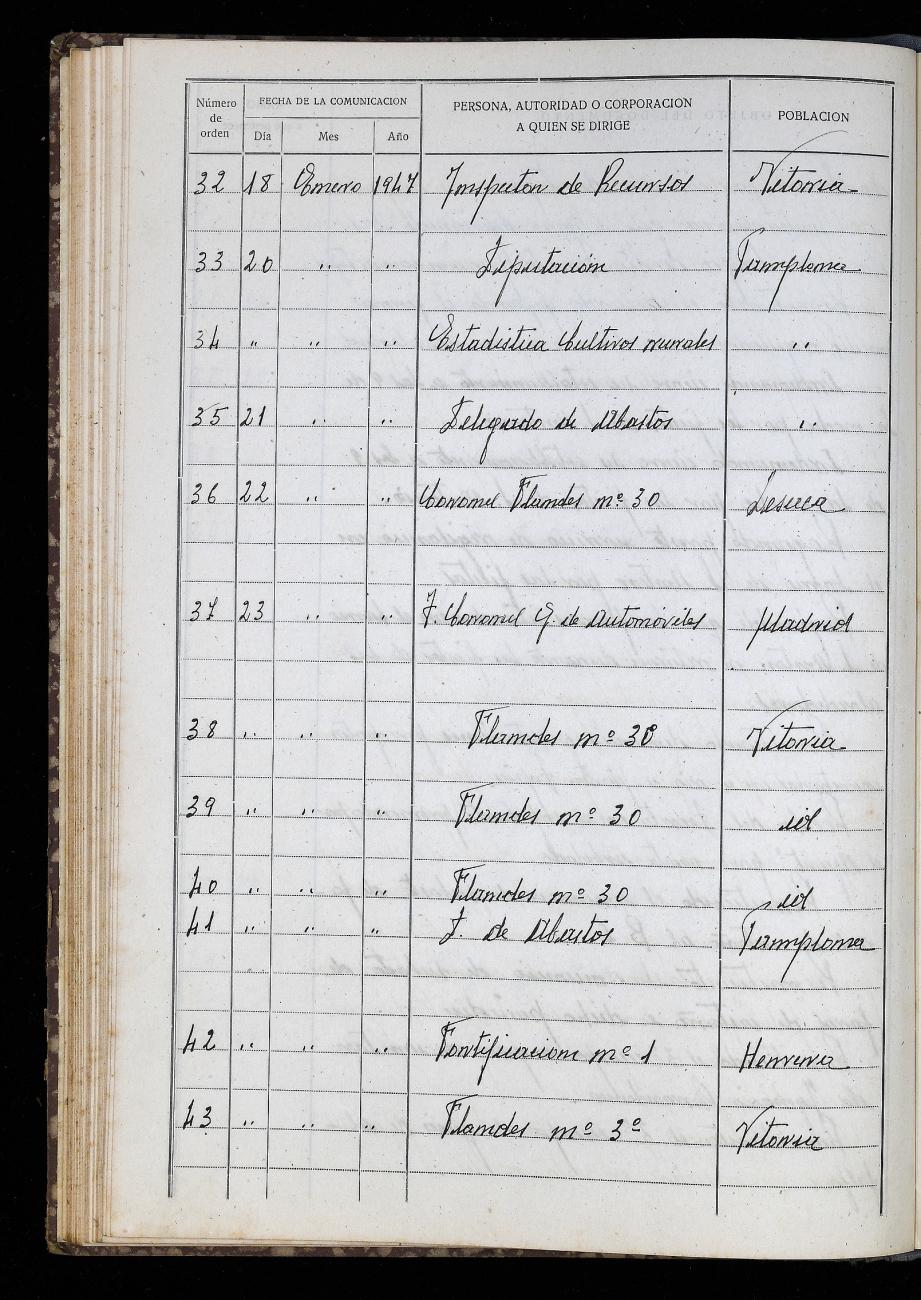 Número de orden | FECHA DE LA COMUNICACION | PERSONA, AUTORIDAD O CORPORACION A QUIEN SE DIRIGE | POBLACION
Día | Mes | Año
32 18 Enero 1947 Inspector de Recursos Vitoria
33 20 " " Diputación Pamplona
34 " " " Estadistica Cultivos rurales "
35 21 " " Delegado de Abastos "
36 22 " " Coronel Flandes nº 30 Lesaca
37 23 " " T. Coronel G. de Automóviles Madrid
38 " " " Flandes nº 30 Vitoria
39 " " " Flandes nº 30 id
40 " " " Flandes nº 30 id
41 " " " D. de Abastos Pamplona
42 " " " Fortificacion nº 1 Herrera
43 " " " Flandes nº 30 Vitoria